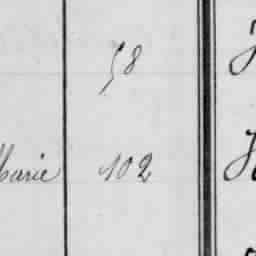 58
Marie 102